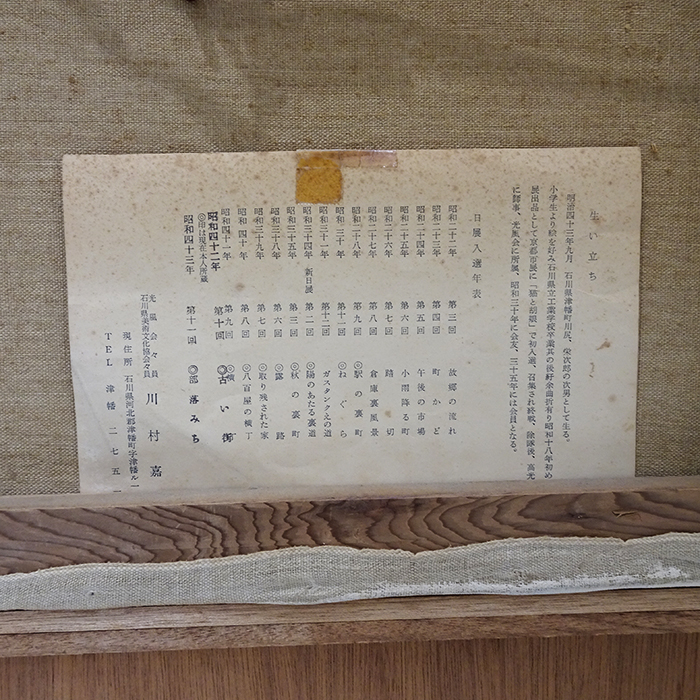 生い立ち
明治四十三年九月 石川県津幡町川尻、栄次郎の次男として生る。
小学生より絵を好み石川県立工業学校卒業其の後紆余曲折有り昭和十八年初め
展出品として京都市展に「猫と胡瓜」で初入選、召集され終戦、除隊後、高光
に師事、光風会に所属、昭和三十年に会友、三十五年には会員となる。
日展入選年表
昭和二十二年 第三回 故郷の流れ
昭和二十三年 第四回 町かど
昭和二十四年 第五回 午後の市場
昭和二十五年 第六回 小雨降る町
昭和二十六年 第七回 踏切
昭和二十七年 第八回 倉庫裏風景
昭和二十八年 第九回 ◎駅の裏町
昭和三十年 第十一回 ◎ねぐら
昭和三十一年 第十二回 ガスタンクえの道
昭和三十四年 新日展 第二回 ◎陽のあたる裏道
昭和三十五年 第三回 ◎秋の裏町
昭和三十八年 第六回 ◎露路
昭和三十九年 第七回 ◎取り残された家
昭和四十年 第八回 ◎八百屋の横丁
昭和四十一年 第九回 ◎横
昭和四十二年 第十回 ◎古い街
◎印は現在本人所蔵
昭和四十三年 第十一回 ◎部落みち
光風会々員
石川県美術文化協会々員
川村嘉
現住所 石川県河北郡津幡町字津幡ル一
TEL 津幡 二七五